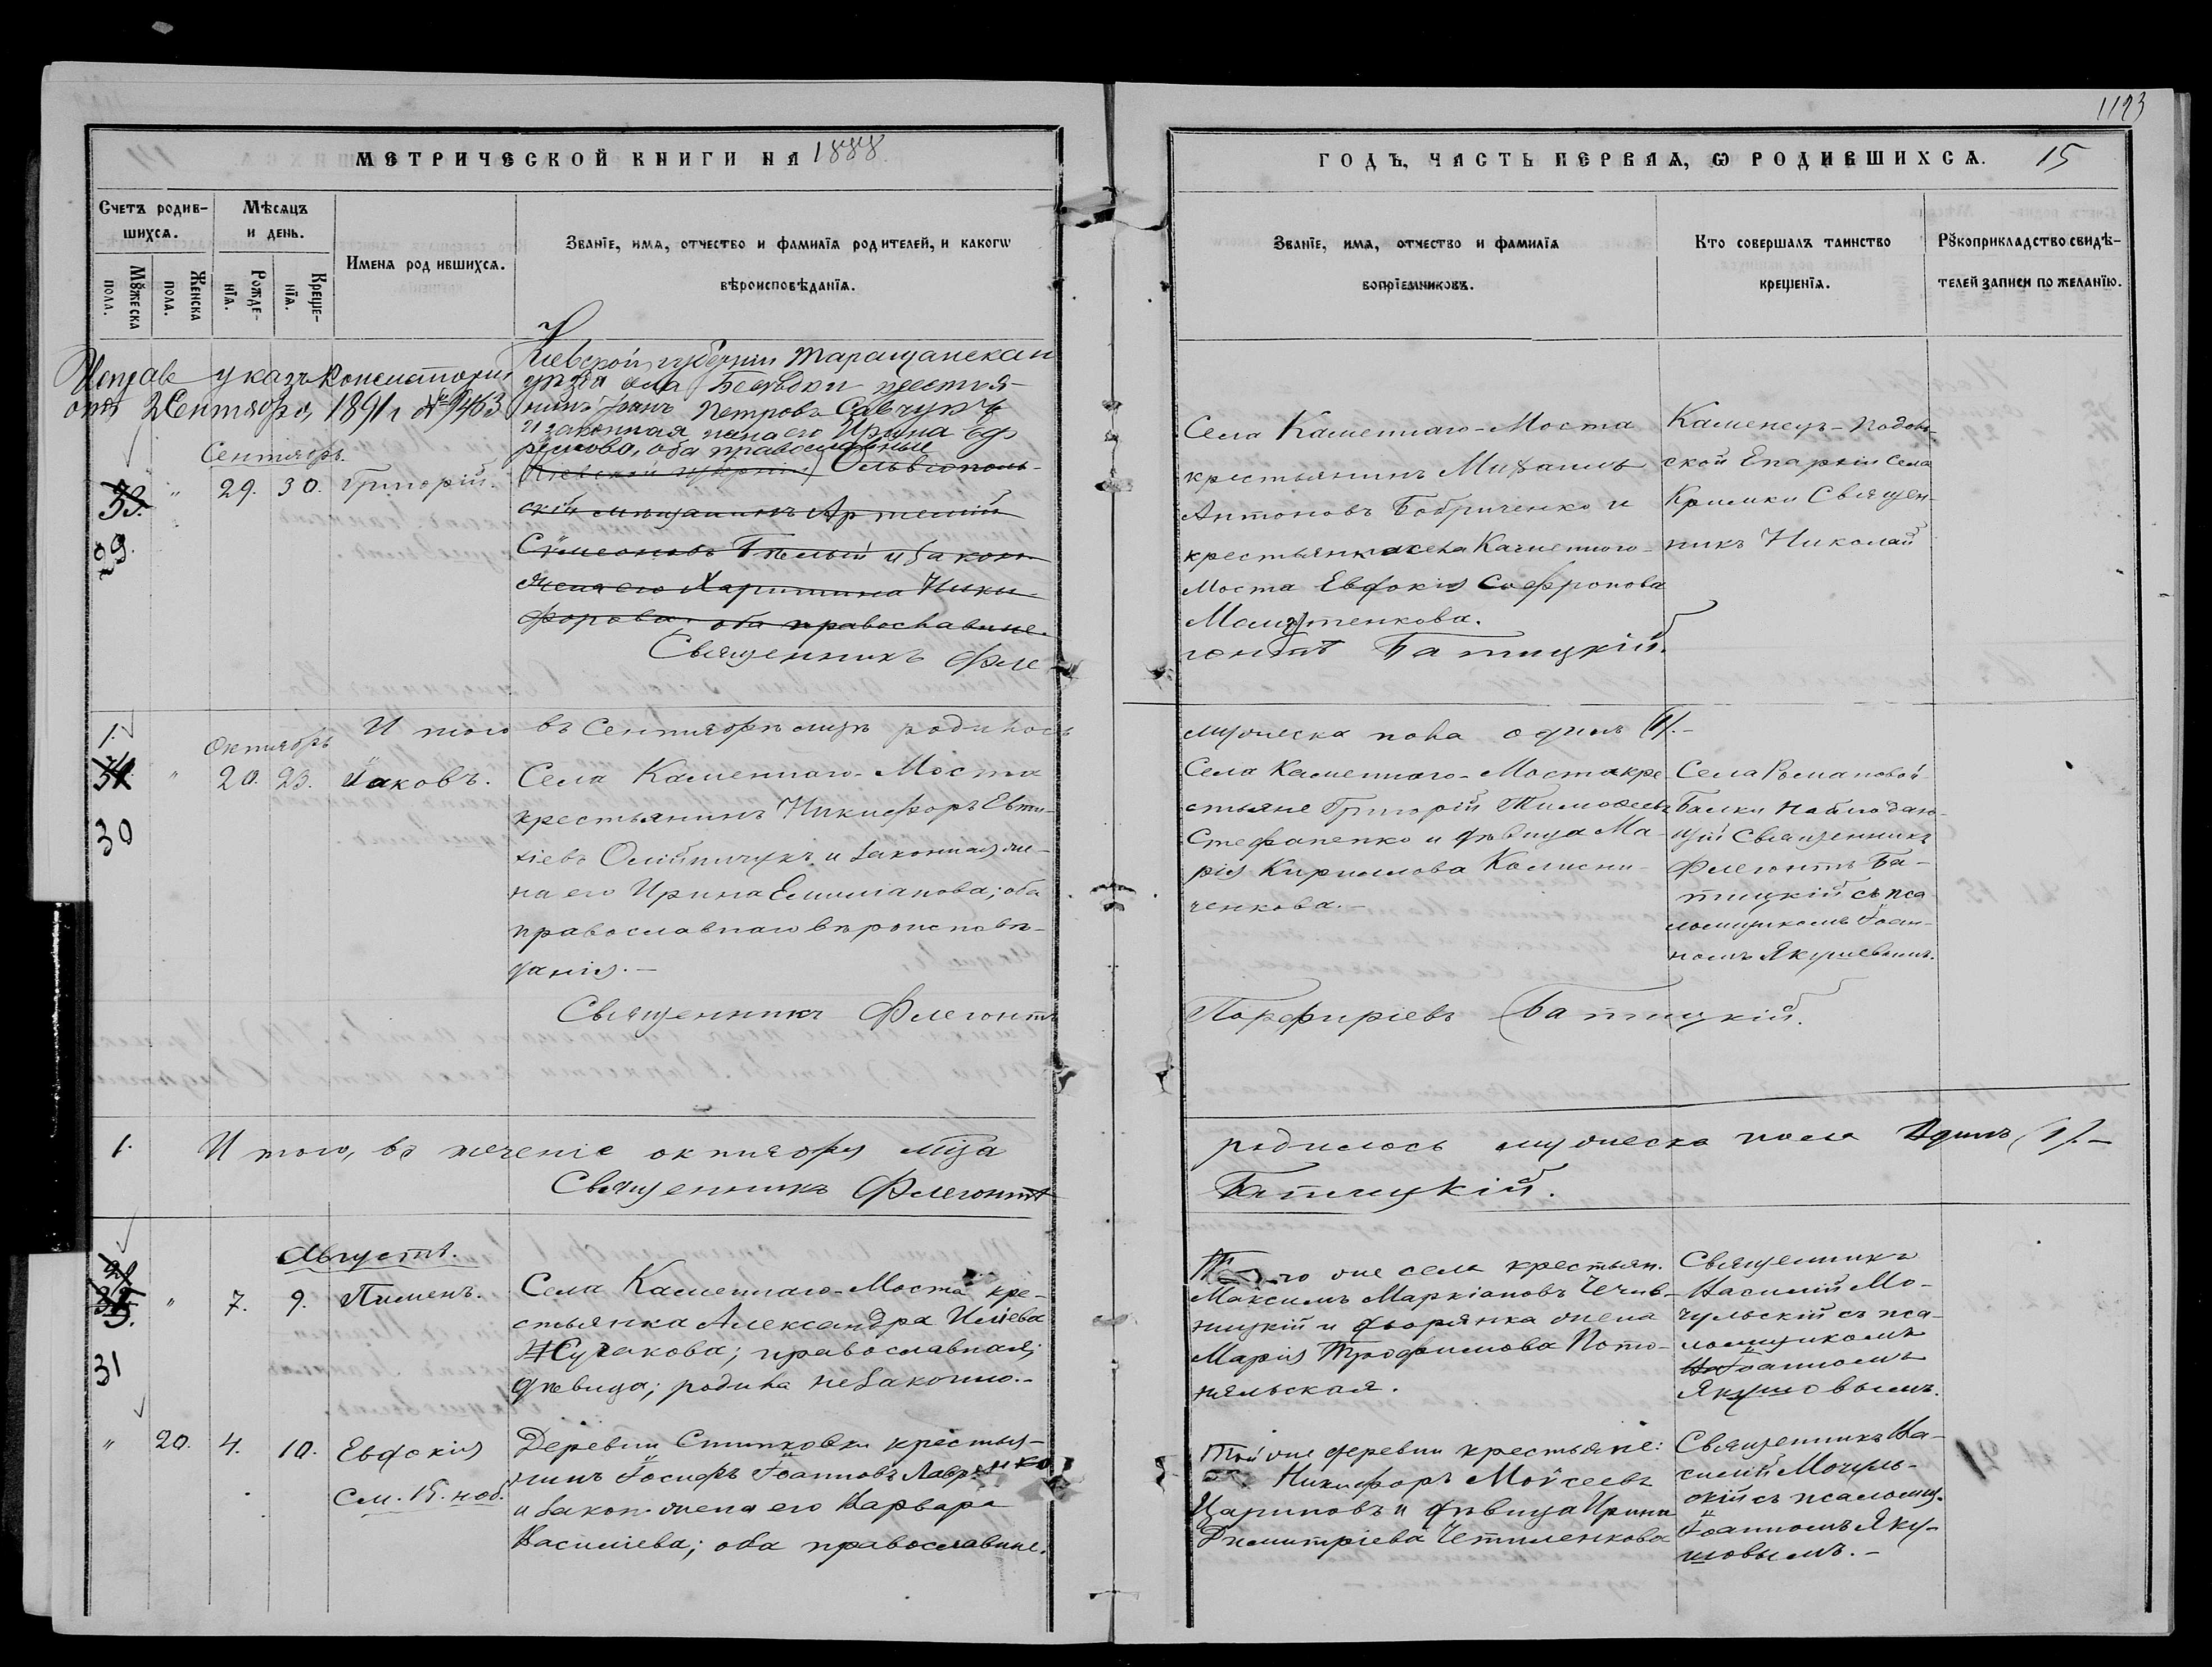 1123
МЕТРИЧЕСКОЙ КНИГИ НА 1888
ГОДЪ, ЧАСТЬ ПЕРВАЯ, Ѡ РОДИВШИХСѦ. 15
Счетъ родив-
шихсѧ.
Мѣсѧцъ
и день.
Имена родившихсѧ.
Званїе, имѧ, отчество и фамилїѧ родителей, и какогѡ
вѣроисповѣданїѧ.
Мꙋжеска
пола.
Женска
пола.
Рожде-
нїѧ.
Креще-
нїѧ.
Званїе, имѧ, отчество и фамилїѧ
воспрїемниковъ.
Кто совершалъ таинство
крещенїѧ.
Рꙋкоприкладство свидѣ-
телей записи по желанїю.
указъ Консисторіи
Сентября 1891 г №
Кіевской губерніи Таращанскаго
уѣзда села крестья-
нинъ Петровъ Савчукъ
и законная жена его Ирина Еф
ремова, оба православные
Сентябрь.
33. " 29. 30. Григорій.
29.
Кіевской губерніи Ольвіополь-
скій мѣщанинъ Артемій
Сѵмеоновъ Бѣлый и закон.
жена его Харитина Ники-
форова, оба православные.
Священникъ Фле-
Села Каменнаго-Моста
крестьянинъ Михаилъ
Антоновъ Бобриченко и
крестьянка села Каменного-
Моста Евдокія Софронова
гонтъ Батицкій.
Каменецъ-Подоль-
ской Епархіи села
Кримки Священ-
никъ Николай
1. Итого въ Сентябрѣ мцѣ родилось
мужеска пола одинъ (1).-
Октябрь
34. " 20. 23. Іаковъ.
30
Села Каменнаго-Моста
крестьянинъ Никифоръ Евти-
хіевъ Олійничукъ и законная же-
на его Ирина Емиліанова; оба
православнаго вѣроисповѣ-
данія.-
Священникъ Флегонтъ
Села Каменнаго-Моста кре-
стьяне Григорій Тимоѳеевъ
Стефаненко и дѣвица Ма-
рія Кириллова Колисни-
ченкова.-
Порфиріевъ Батицкій.
Села Романовой
Балки наблюдаю-
щій Священникъ
Флегонтъ Ба-
тицкій съ пса-
ломщикомъ Іоан-
номъ Якушевымъ.
1. Итого, въ теченіе октября мца
родилось мужеска пола Одинъ (1).-
Священникъ Флегонтъ
Батицкій.
Августъ.
35. " 7. 9. Пименъ.
31
Села Каменнаго-Моста кре-
стьянка Александра Иліева
Жулакова; православная;
дѣвица; родила незаконно.-
Того же села крестьян.
Максимъ Маркіановъ Чечив-
ницкій и дворянка жена
Марія Трофимова Пото-
няльская.
Священникъ
Василій Мо-
чульскій съ пса-
ломщикомъ
Іоанномъ
Якушовымъ.
" 20. 4. 10. Евдокія
См. 15. ноб.
Деревни Стипковки крестья-
нинъ Іосифъ Іоанновъ Лавренко
и закон. жена его Варвара
Василіева; оба православные.
Той же деревни крестьяне:
Никифоръ Моѵсеевъ
Цариновъ и дѣвица Ирина
Димитріева Четиленкова
Священникъ Ва-
силій Мочуль-
скій съ псаломщ.
Іоанномъ Яку-
шовымъ.-